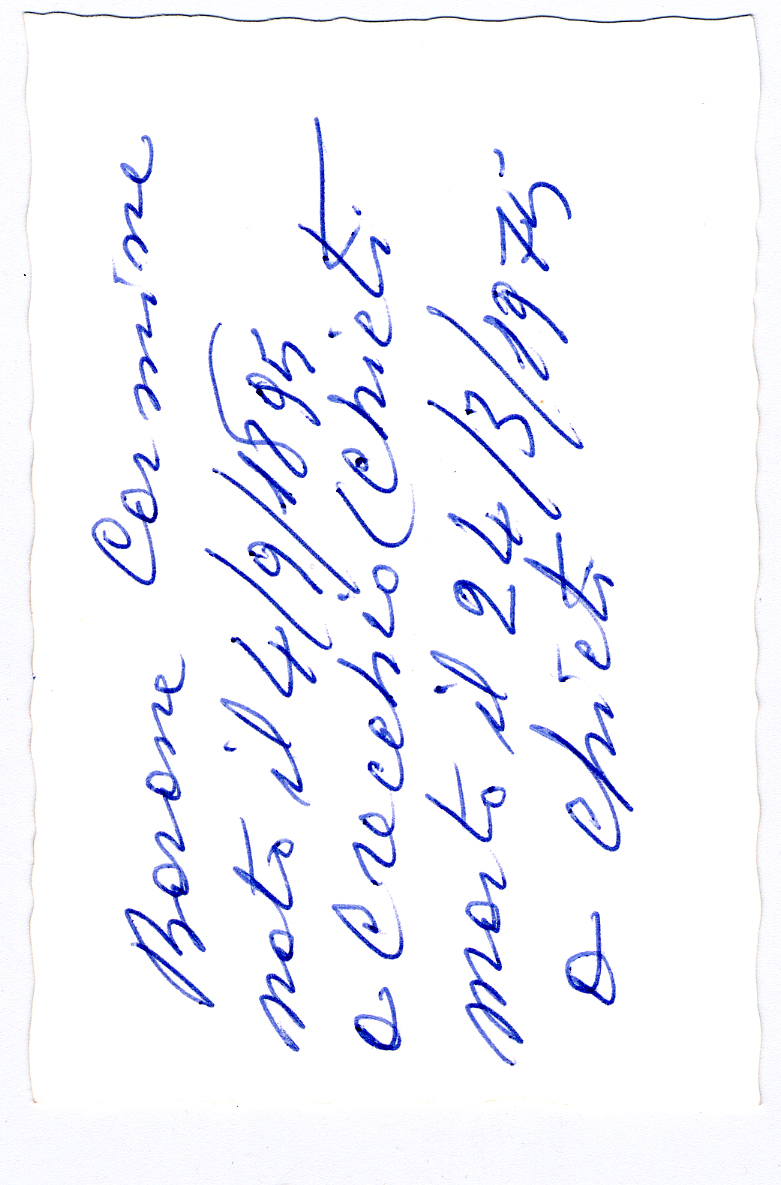 Barone Carmine
nato il 4/9/1895
a Crecchio (Chieti
morto il 24/3/1975
a Chieti